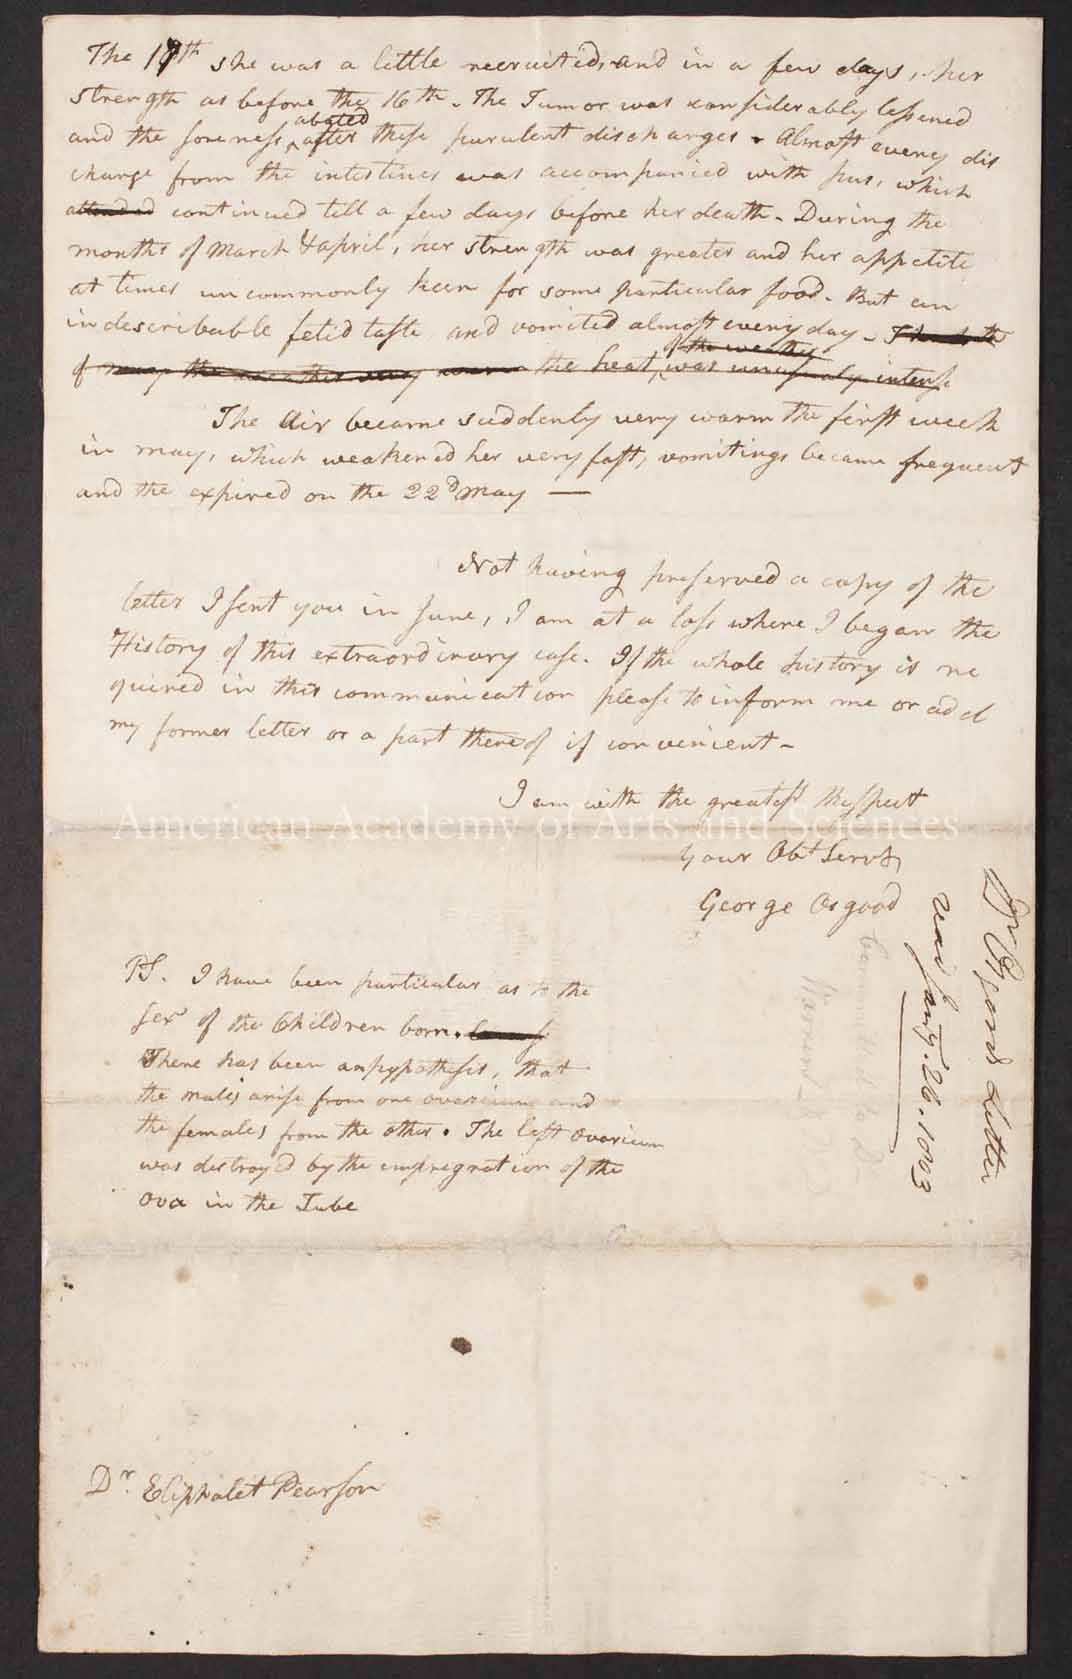 The 17th she was a little recruited, and in a few days, her
strength as before the 16th. The Tumor was considerably lessened
and the soreness abated after these purulent discharges. Almost every dis
charge from the intestines was accompanied with pus, which
attended continued till a few days before her death. During the
months of March & april, her strength was greater and her appetite
at times uncommonly keen for some particular food. But an
indescribable fetid taste, and vomited almost every day.
of the heat, of the weather was unusualy intense
The Air became suddenly very warm the first week
in may, which weakened her very fast, vomitings became frequent
and the expired on the 22d May —
Not having preserved a copy of the
letter I sent you in June, I am at a loss where I began the
History of this extraordinary case. If the whole history is re
quired in this communication please to inform me or add
my former letter or a part thereof if convenient -
I am with the greatest Respect
American Academy of Arts and Sciences
Your Obt Servt,
George Osgood
PS. I have been particular as to the
sex of the Children born.
There has been an hypothesis, that
the males arise from one ovarium and
the females from the other. The left ovarium
was destroyed by the impregnation of the
ova in the Tube
Dr. Eliphalet Pearson
Dr Osgood's Letter
read Jany. 26. 1803